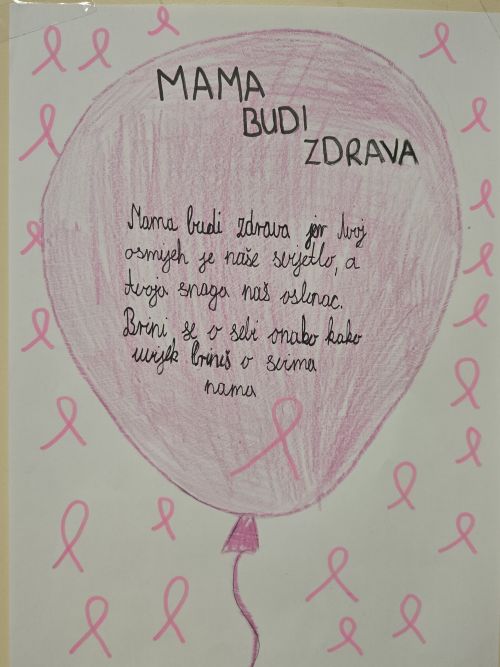 MAMA
BUDI
ZDRAVA
Mama budi zdrava jer tvoj
osmijeh je naše svjetlo, a
tvoja snaga naš oslonac.
Brini se o sebi onako kako
uvijek briniš o svima
nama